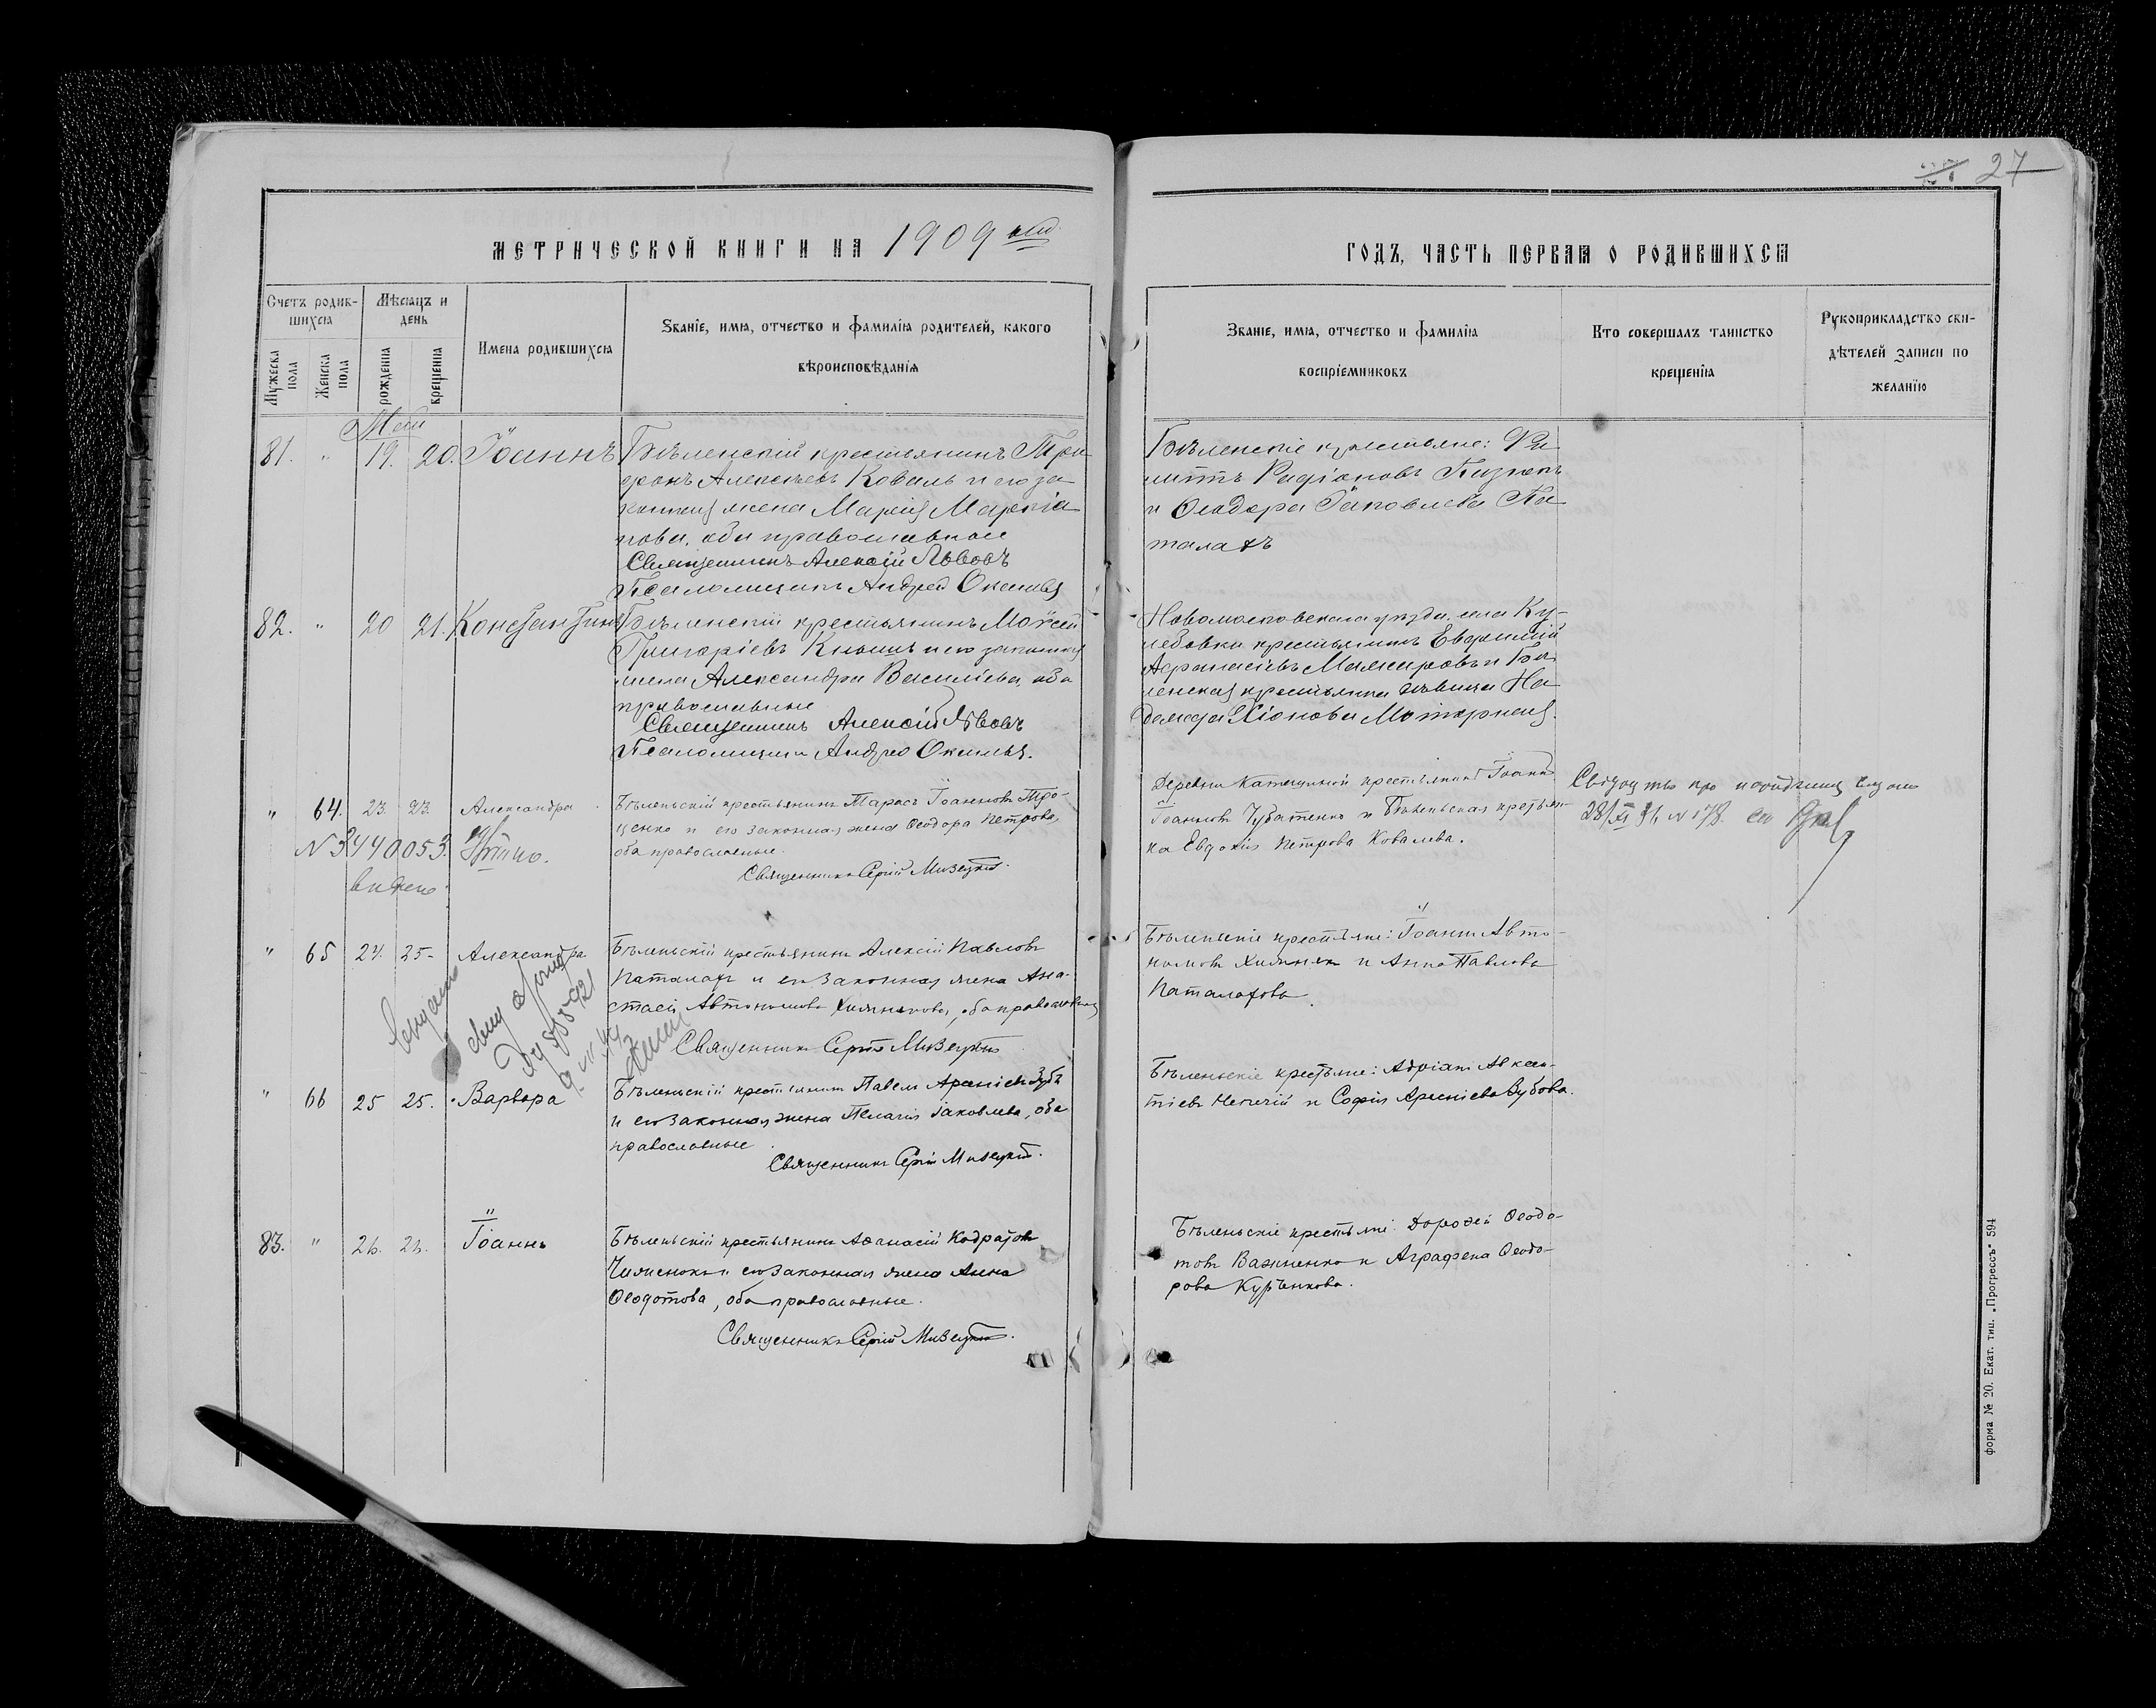 27
МЕТРИЧЕСКОЙ КНИГИ НА 1909
ГОДЪ, ЧАСТЬ ПЕРВАЯ О РОДИВШИХСЯ
Счетъ родив-
шихся
Мѣсяцъ и
день
Мужеска
пола
Женска
пола
рожденія
крещенія
Имена родившихся
Званіе, имя, отчество и фамилія родителей, какого
вѣроисповѣданія
Званіе, имя, отчество и фамилія
воспріемниковъ
Кто совершалъ таинство
крещенія
Рукоприкладство сви-
дѣтелей записи по
желанію
Май
81. " 19. 20. Іоаннъ
Бѣленскій крестьянинъ Три-
фонъ Алексѣевъ Коваль и его за-
конная жена Марія Маркіа-
нова, оба православные
Священникъ Алексій Львовъ
Псаломщикъ Андрей
Бѣленскіе крестьяне: Фи-
липпъ Радіоновъ
и Ѳеодора Іаковлева Па-
талахъ
82. " 20 21. Константинъ
Бѣленскій крестьянинъ Моѵсей
Григоріевъ Кнышъ и его законная
жена Александра Василіева, оба
православные
Священникъ Алексій Львовъ
Псаломщикъ Андрей
Новомосковскаго уѣзда, села Ку-
лебовки крестьянинъ Евфимій
Афанасіевъ и Бѣ-
ленская крестьянка дѣвица На-
дежда Хіонова
" 64. 23. 23. Александра
Бѣленьскій крестьянинъ Тарасъ Іоанновъ Тро-
ценко и его законная жена Ѳеодора Петрова,
оба православные.
Священникъ Сергій Мизецкій.
N 3440053.
Деревни крестьянинъ Іоаннъ
Іоанновъ Чубатенко и Бѣленьская крестьян-
ка Евдокія Петрова Ковалева.
про
28/XI N 178.
" 65 24. 25- Александра
Бѣленьскій крестьянинъ Алексій Павловъ
Паталахъ и его законная жена Ана-
стасія Автономова, оба православные
Священникъ Сергій Мизецкій
Бѣленьскіе крестьяне: Іоаннъ Авто-
номовъ и Анна Павлова
Паталахова.
" 66 25 25. Варвара
Бѣленьскій крестьянинъ Павелъ Арсеніевъ Зубъ
и его законная жена Пелагія Іаковлева, оба
православные.
Священникъ Сергій Мизецкій.
Бѣленьскіе крестьяне: Адріанъ Авксен-
тіевъ и Софія Арсеніева Зубова.
83. " 26. 26. Іоаннъ
Бѣленьскій крестьянинъ Аѳанасій Кодратовъ
и его законная жена Анна
Ѳеодотова, оба православные.
Священникъ Сергій Мизецкій.
Бѣленьскіе крестьяне: Дороѳей Ѳеодо-
товъ Важненко и Аграфена Ѳеодо-
рова Курънкова.
Форма № 20. Екат. тип. „Прогрессъ" 594